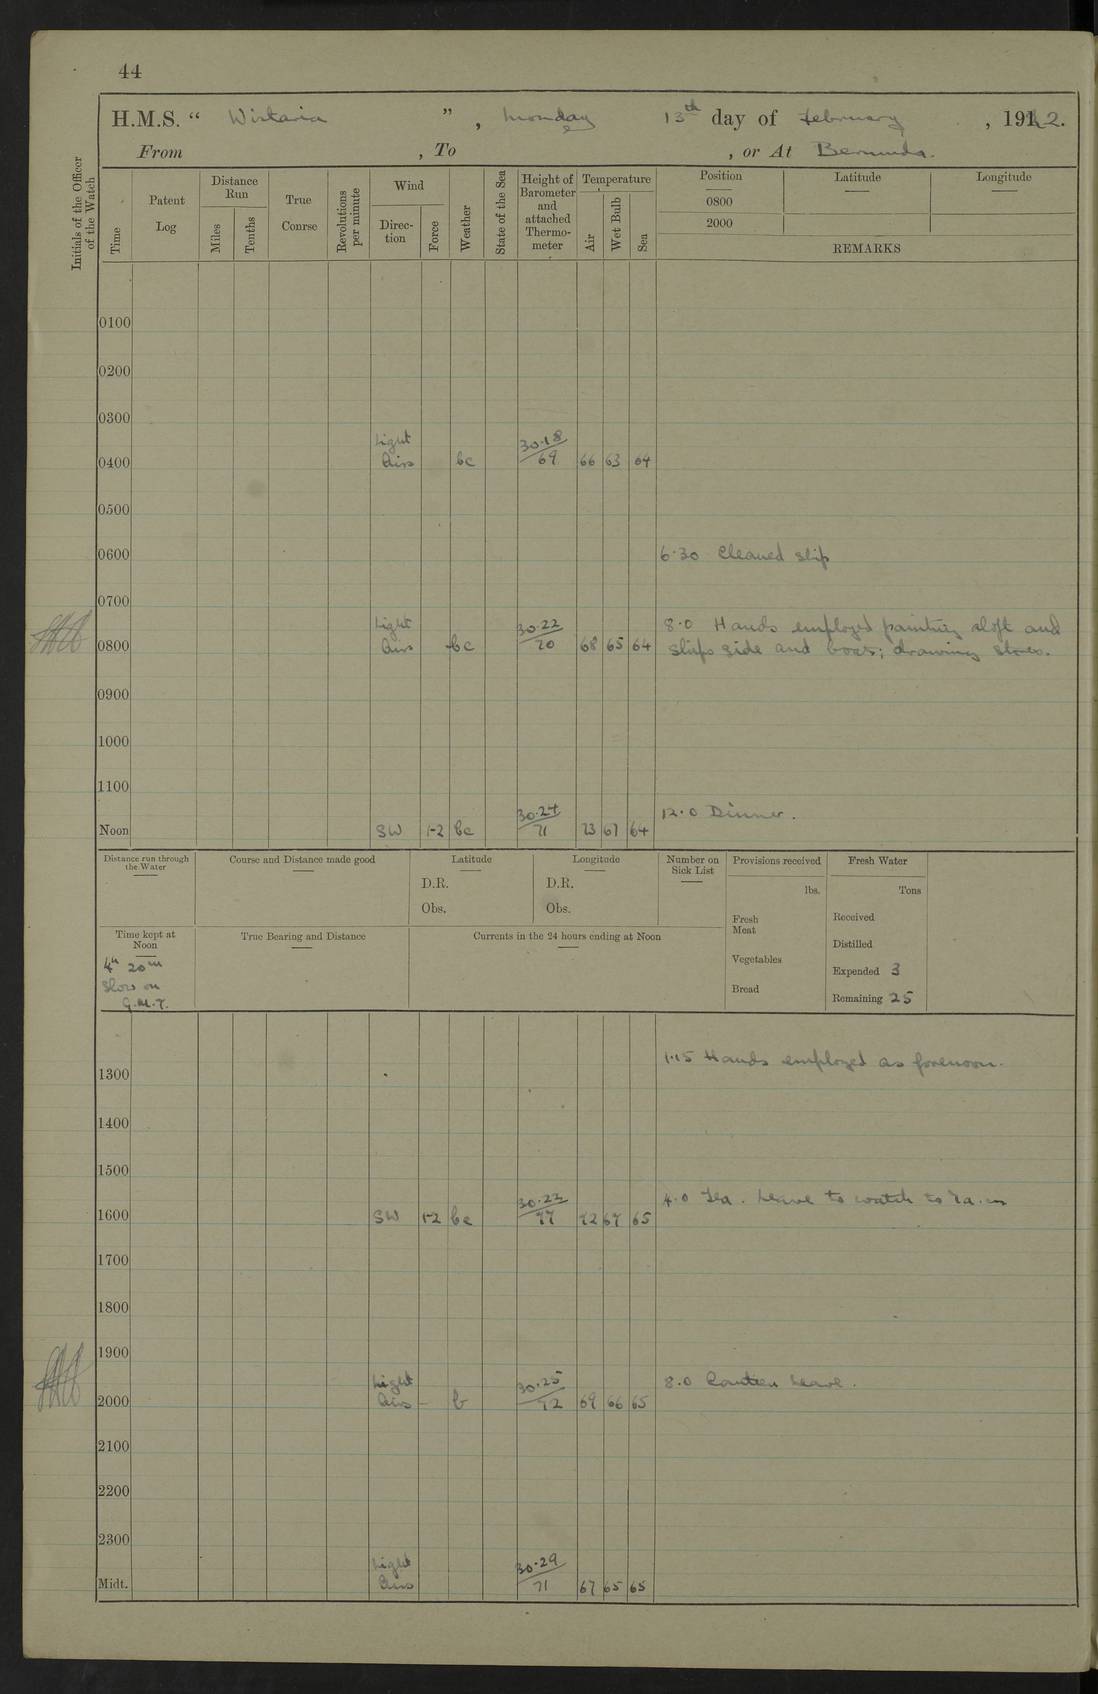 44
H.M.S. “ Wistaria ” , Monday 13th day of February , 1922.
From , To , or At Bermuda.
Initials of the Officer of the Watch
Time
Patent Log
Distance Run
Miles
Tenths
True Course
Revolutions per minute
Wind
Direc-tion
Force
Weather
State of the Sea
Height of Barometer and attached Thermo-meter
Temperature
Air
Wet Bulb
Sea
Position Latitude Longitude
0800
2000
REMARKS
0100
0200
0300
Light 30.18
0400 Airs bc 69 66 63 64
0500
0600 6.30 Cleaned ship
0700
Light 30.22 8.0 Hands employed painting aloft and
0800 Airs bc 70 68 65 64 ships side and boats; drawing stores.
0900
1000
1100
30.24 12.0 Dinner.
Noon SW 1-2 bc 71 73 67 64
Distance run through the Water
Course and Distance made good
Latitude
D.R.
Obs.
Longitude
D.R.
Obs.
Number on Sick List
Provisions received
lbs.
Fresh Meat
Vegetables
Bread
Fresh Water
Tons
Received
Distilled
Expended 3
Remaining 25
Time kept at Noon
4h 20m
Slow on
G.M.T.
True Bearing and Distance
Currents in the 24 hours ending at Noon
1.15 Hands employed as forenoon.
1300
1400
1500
30.22 4.0 Tea. Leave to watch to 7 a.m
1600 SW 1-2 bc 77 72 67 65
1700
1800
1900
Light 30.25 8.0 Canteen Leave.
2000 Airs – b 72 69 66 65
2100
2200
2300
Light 30.29
Midt. Airs 71 67 65 65